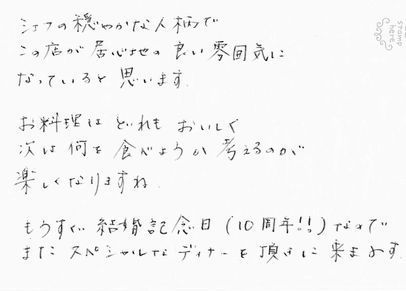 シェフの穏やかな人柄で
この店が居心地の良い雰囲気に
なっていると思います.
お料理はどれもおいしく
次は何を食べようか考えるのが
楽しくなりますね.
もうすぐ結婚記念日(10周年!!)なので
またスペシャルなディナーを頂きに来ます.
stamp
here